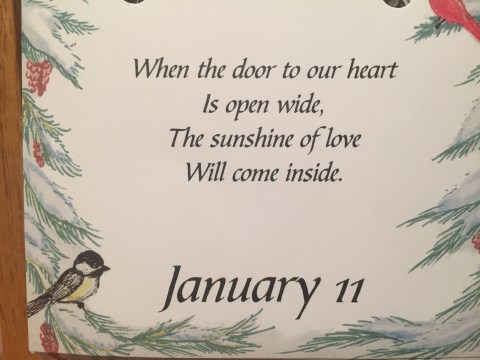 When the door to our heart
Is open wide,
The sunshine of love
Will come inside.
January 11